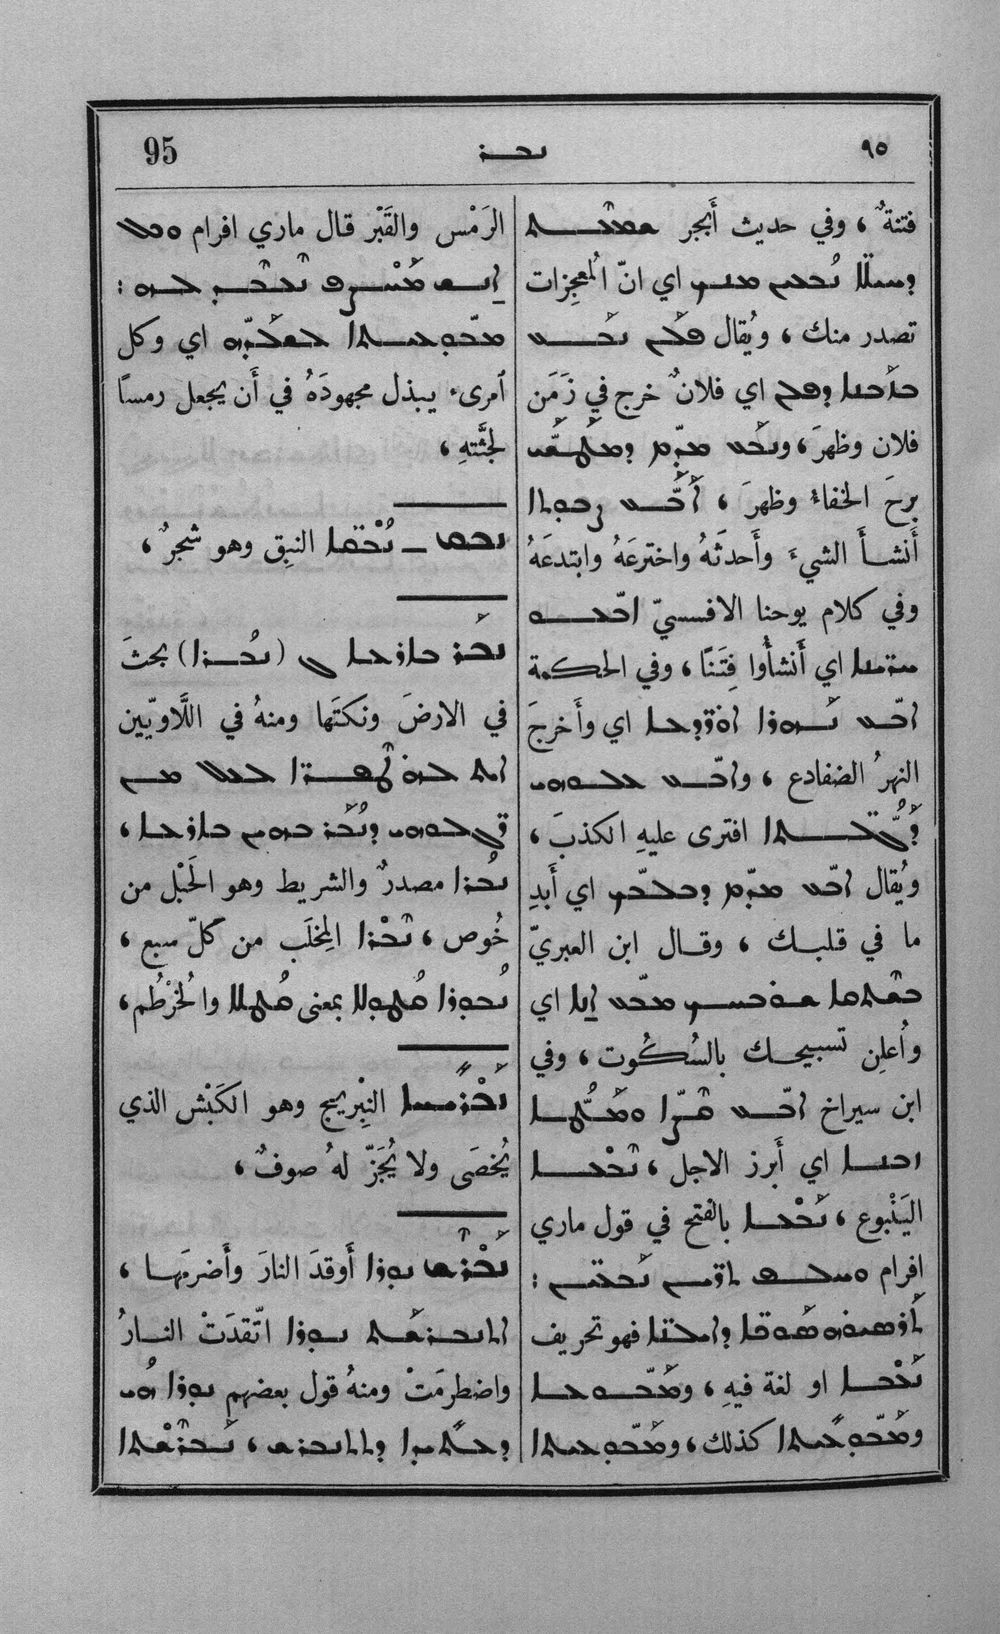 ٩٥ ܢܒܪ 95
فتنةٌ ، وفي حديث أَبجر
ܢܒܥܝܢ ܡܢܟ اي انّ المُعجِزات
تصدر منك ، ويُقال ܦܠܢ ܢܒܥ
ܒܙܒܢܐ ܕܦܠܢ اي فلانٌ خرج في زَمَن
فلان وظهرَ ، ܘܢܒܥ ܡܕܡ ܕܡܛܫܝ
برحَ الخفاءُ وظهرَ ، ܐܒܥ ܨܒܘܬܐ
أَنشأَ الشيءَ وأَحدثَهُ واخترعَهُ وابتدعَهُ
وفي كلام يوحنا الافسسيّ ܐܒܥܘ
اي أَنشأُوا فِتَنًا ، وفي الحكمة
ܐܒܥ ܢܗܪܐ ܐܘܪܕܥܐ اي وأَخرجَ
النهرُ الضفادع ، ܘܐܒܥ ܥܠܘܗܝ
ܕܓܠܬܐ افترى عليهِ الكذبَ ،
ويُقال ܐܒܥ ܡܕܡ ܕܒܠܒܟ اي أَبدِ
ما في قلبك ، وقال ابن العبريّ
ܒܫܬܩܐ ܫܘܒܚܟ ܡܒܥ ܐܢܐ اي
وأُعلِن تسبيحك بالسُكُوت ، وفي
ابن سيراخ ܐܒܥ ܩܨܐ ܘܡܛܐ
ܙܒܢܐ اي أَبرز الاجل ، ܢܒܥܐ
اليَنْبوع ، ܢܒܥܐ بالفتح في قول ماري
افرام
فهو تحريف
ܢܒܥܐ او لغة فيهِ ، ܘܡܒܘܥܐ
ܘܡܒܘܥܝܬܐ كذلك ، ܘܡܒܘܥܝܬܐ
الرَمْس والقَبْر قال ماري افرام ܘܟܠ
ܐܢܫ ܡܨܪܦ ܢܒܢܐ ܠܗ :
ܡܒܘܥܝܬܐ ܠܫܠܕܗ اي وكل
أمرىء يبذل مجهودَهُ في أَن يجعل رمسًا
لجثَّتهِ ،
ܢܒܩ ــ ܢܒܩܐ النبِق وهو شجرٌ ،
ܢܒܪ ܒܐܪܥܐ (ܢܒܪܐ) بحثَ
في الارضَ ونكتَها ومنهُ في اللَّاويّين
ܐܝܬ ܠܗܘܢ ܛܦܪܐ ܠܥܠ ܡܢ
ܪܓܠܘܗܝ ܕܢܒܪ ܒܗܘܢ ܒܐܪܥܐ ،
ܢܒܪܐ مصدرٌ والشريط وهو الحَبْل من
خُوص ، ܢܒܪܐ المِخلَب من كلّ سبع ،
ܢܒܘܪܐ بمعنى والخُرْطُم ،
النِبريج وهو الكَبْش الذي
يُخصَى ولا يُجَزّ لهُ صوفٌ ،
ܢܒܪܫ ܢܘܪܐ أَوقدَ النارَ وأَضرمَها ،
ܐܬܢܒܪܫܬ ܢܘܪܐ اتّقدَتْ النارُ
واضطرمَتْ ومنهُ قول بعضهم ܢܘܪܐ ܗܝ
ܕܐܬܢܒܪܫ ، ܢܒܪܫܬܐ